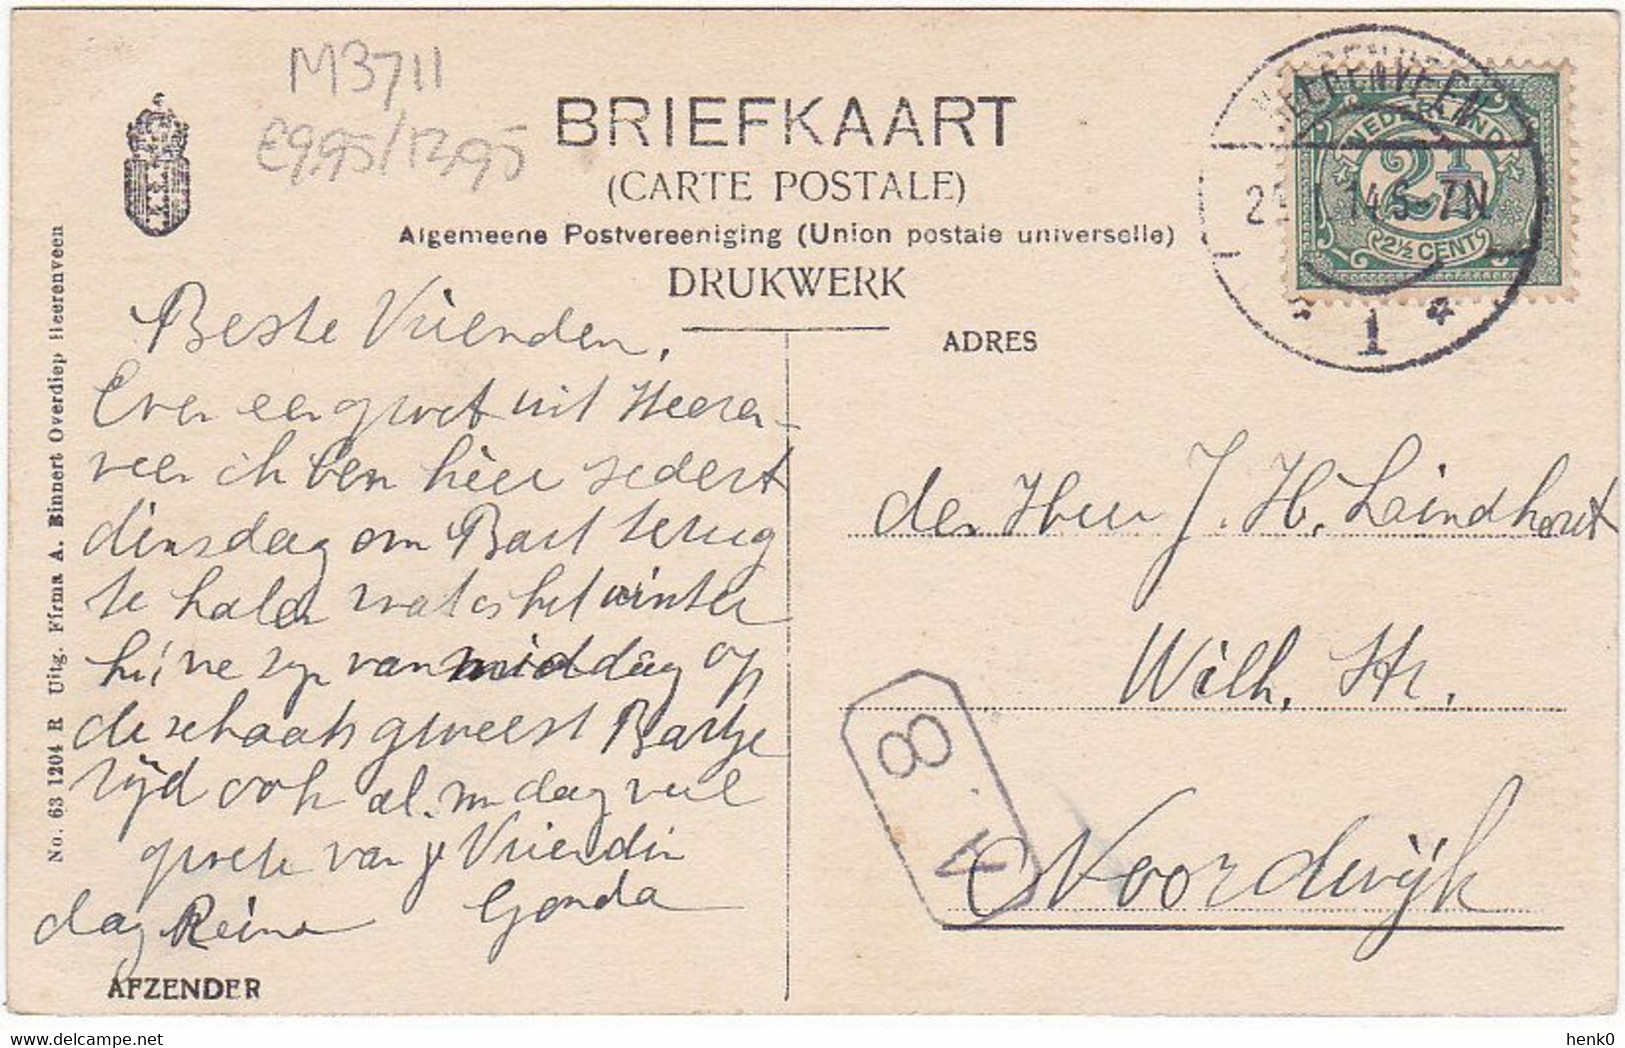 M3711
€9,95/12,95
BRIEFKAART
(CARTE POSTALE)
Algemeene Postvereeniging (Union postale universelle)
DRUKWERK
HEERENVEEN
14 5-7N
1
NEDERLAND
2½
2½ CENT
No. 63 1204 R Uitg. Firma A. Binnert Overdiep Heerenveen
Beste Vrienden,
Even een groet uit Heeren-
veen ik ben hier sedert
dinsdag om Bart terug
te halen wat is het winter
hi, we zijn van middag op
de schaats geweest Bartje
rijd ook al. nu dag veel
groete van je Vriendin
Gonda
dag Reina
AFZENDER
ADRES
den Heer J. H. Lindhout
Wilh. Str.
Noordwijk
8
N
henk0